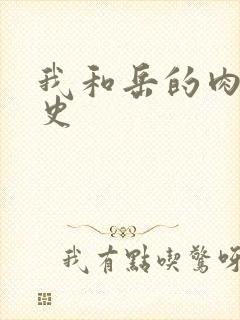 我和岳的肉
史
我有點喫驚呀